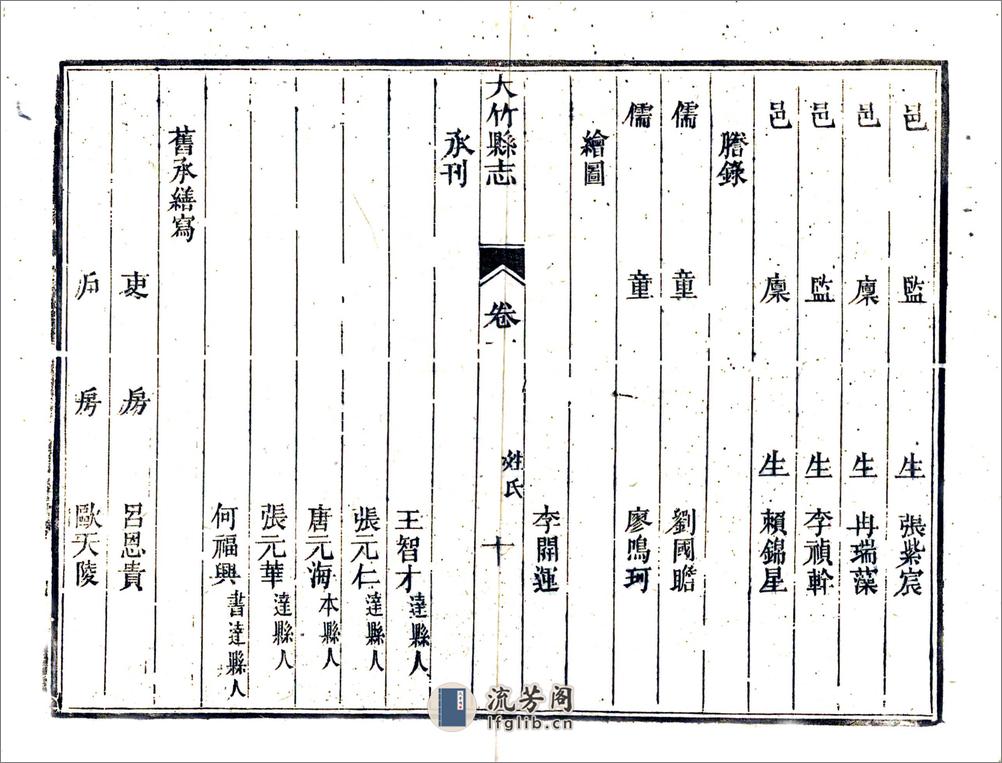 邑監生張紫宸
邑廩生冉瑞藻
邑監生李禎幹
邑廩生賴錦星
謄錄
儒童劉國瞻
儒童廖鳴珂
繪圖
李開運
大竹縣志 卷 姓氏 十
承刊
王智才達縣人
張元仁達縣人
唐元海本縣人
張元華達縣人
何福興書達縣人
舊承繕寫
吏房呂恩貴
戶房歐天陵
流芳阁
lfglib.cn